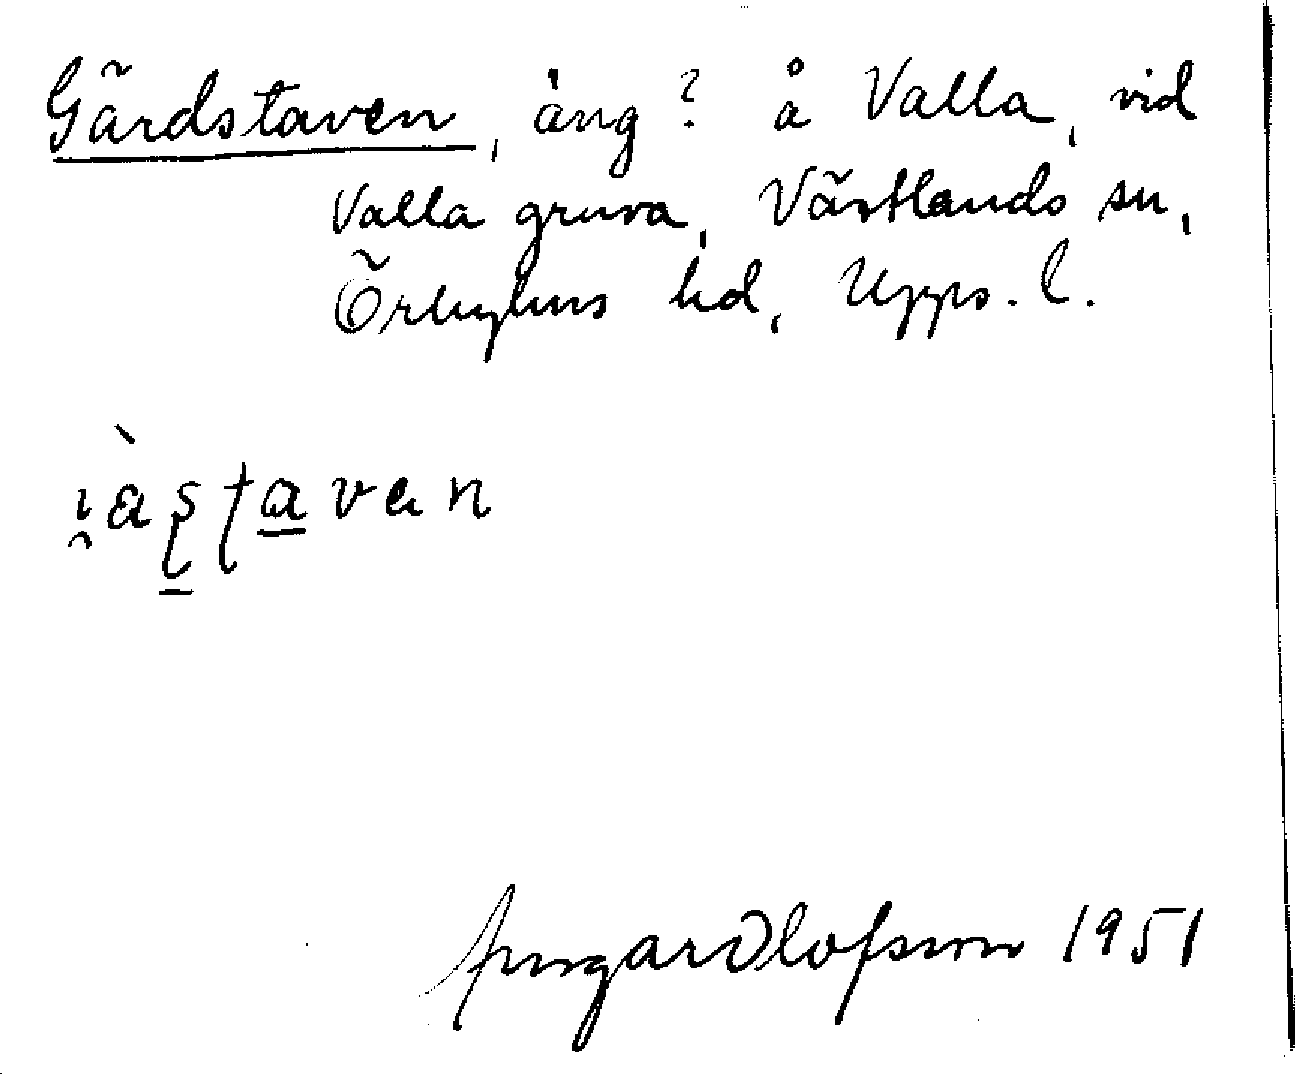 Gärdstaven, äng? å Valla, vid
Valla gruva, Västlands sn,
Örbyhus hd, Upps. l.
i̯àʂʈa̲van
Ingar Olofsson 1951